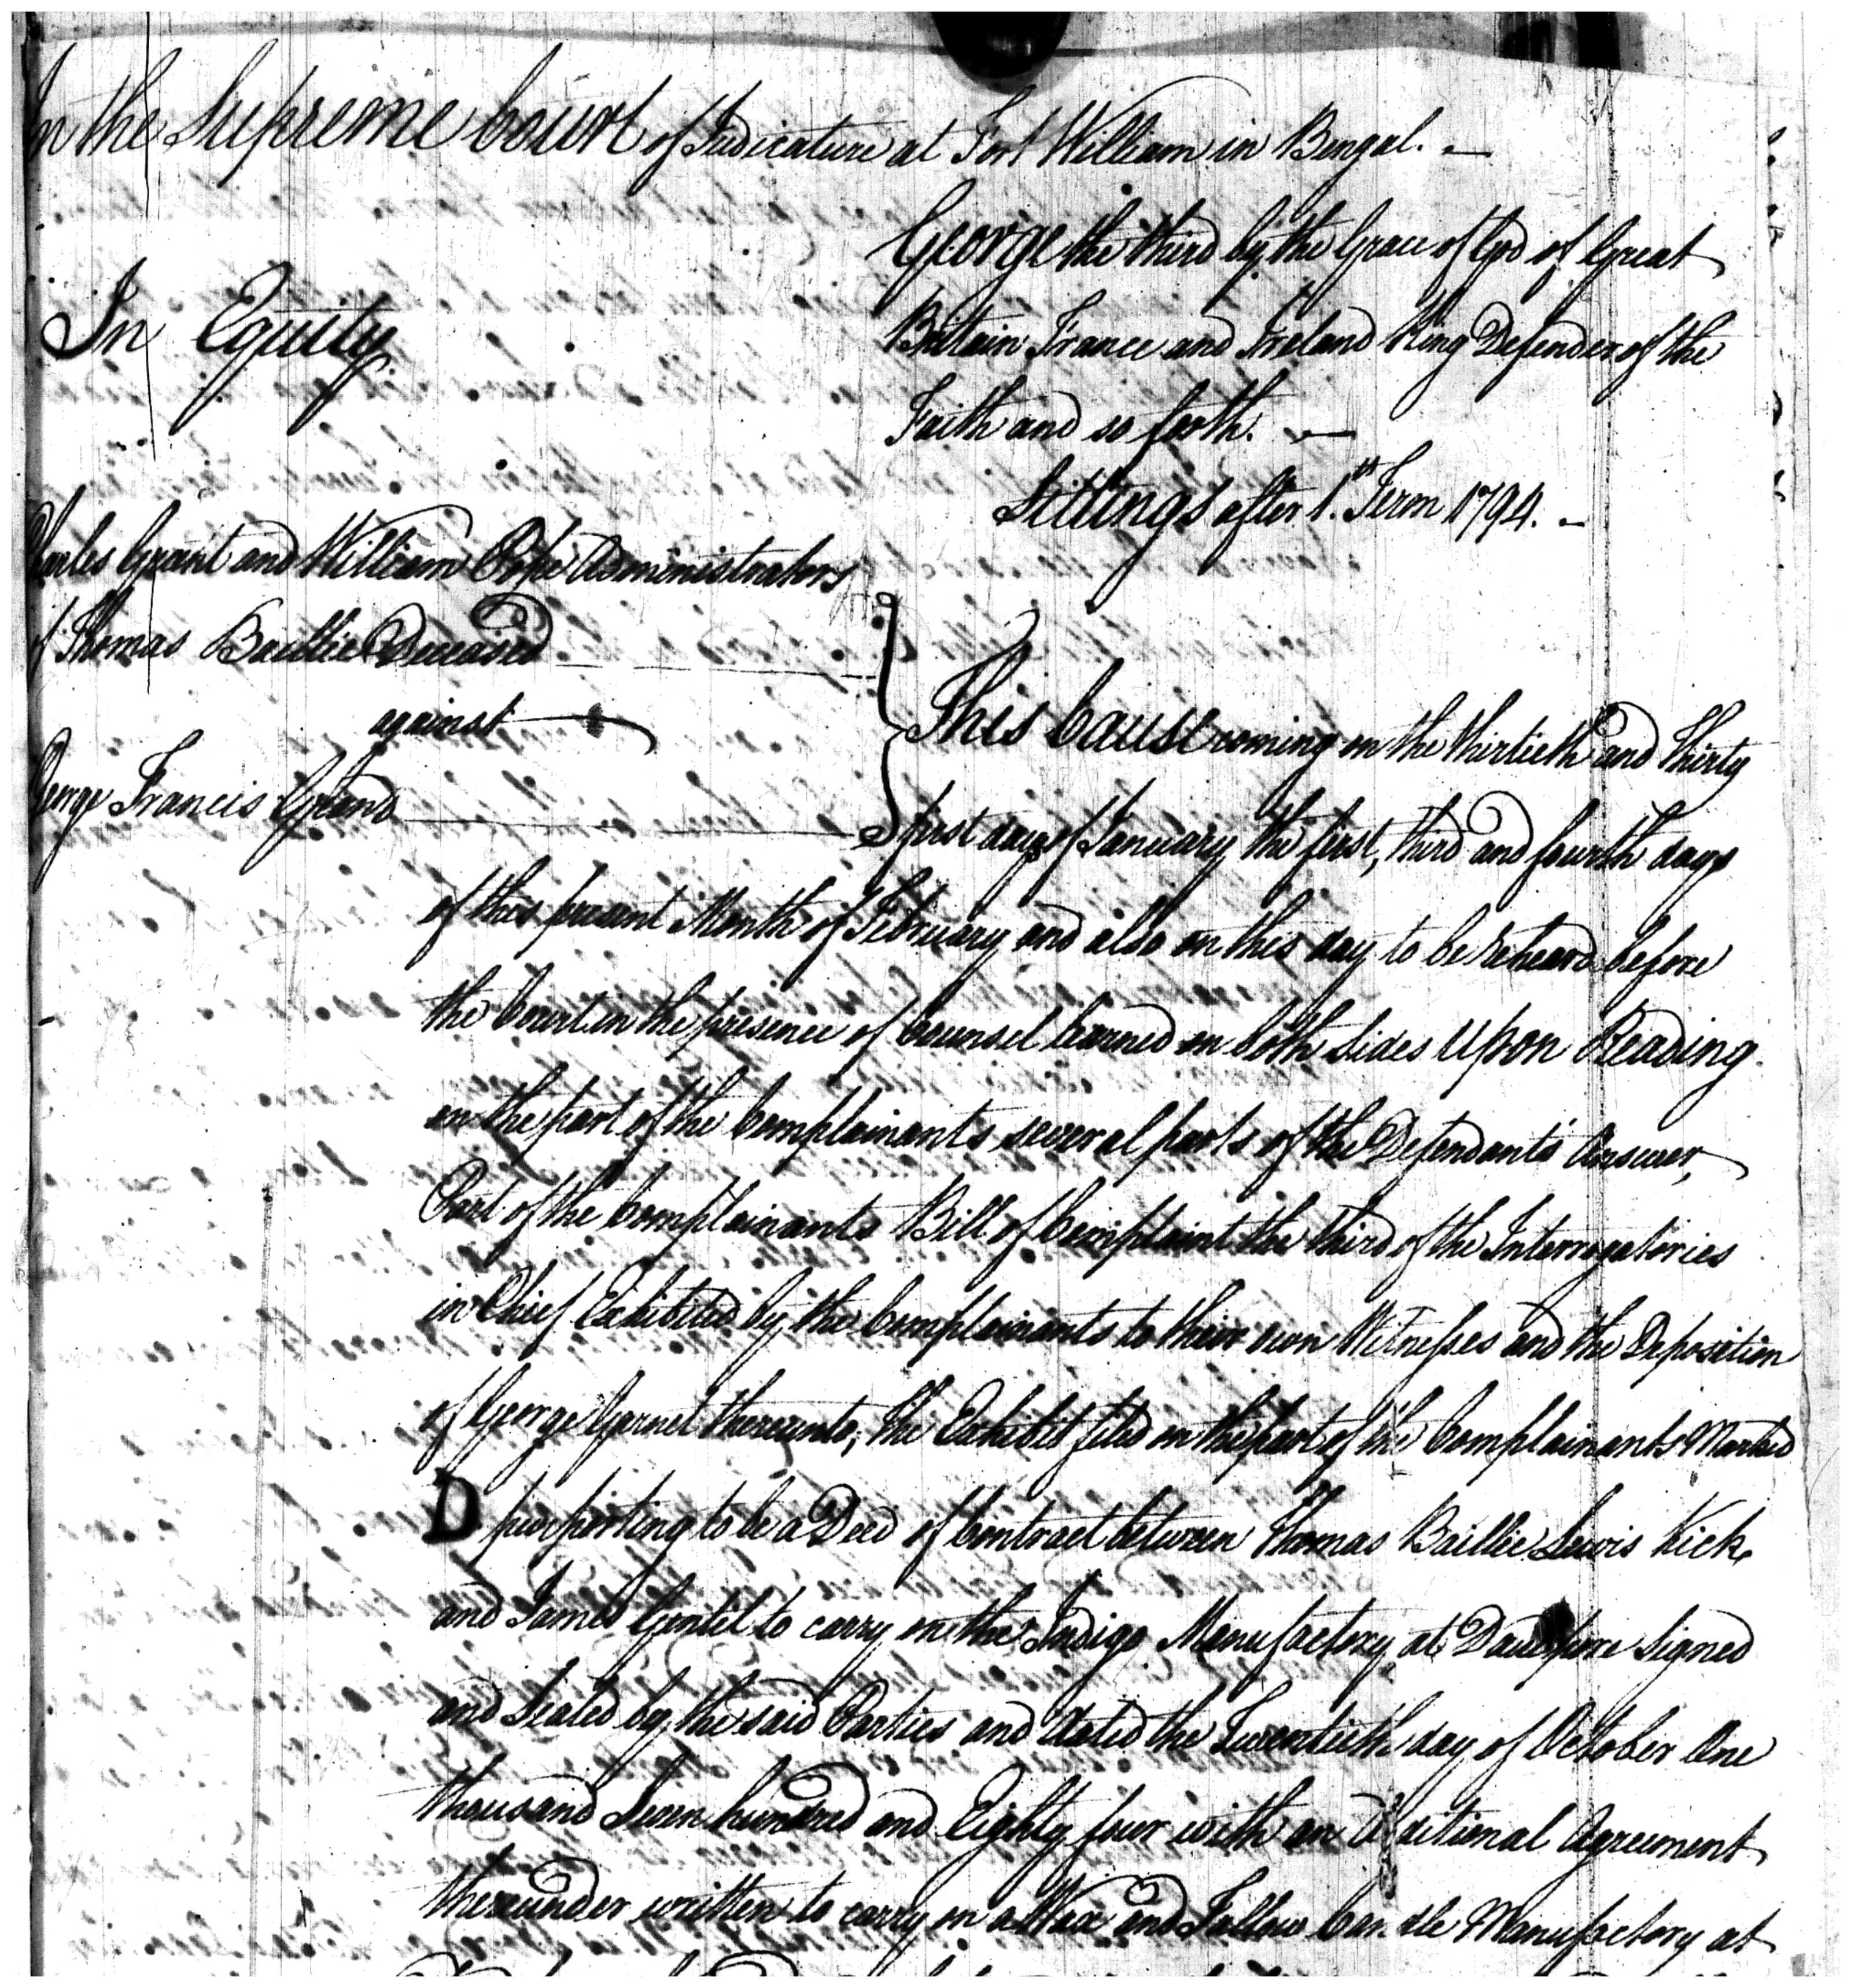 In the Supreme Court of Judicature at Fort William in Bengal. —
George the third by the Grace of God of Great
Britain France and Ireland King Defender of the
Faith and so forth. —
In Equity
Sittings after 1.st Term 1794. —
Charles Grant and William Pope Administrators
of Thomas Baillie Deceased
against
George Francis Grand
This Cause coming on the thirtieth and Thirty
first days of January the first, third and fourth days
of this present Month of February and also on this day to be reheard before
the Court in the presence of Counsel learned on both sides Upon Reading
on the part of the Complainants several parts of the Defendants Answer,
Part of the Complainants Bill of Complaint the third of the Interrogatories
in Chief Exhibited by the Complainants to their own Witnesses and the Deposition
of George Garnet thereunto, the Exhibit filed on the part of the Complainants Marked
D purporting to be a Deed of Contract between Thomas Baillie Lewis Kick
and James Gentil to carry on the Indigo Manufactory at signed
and Sealed by the said Parties and dated the Twentieth day of October One
thousand Seven hundred and Eighty four with an Additional Agreement
thereunder written to carry on a Wax and Tallow Candle Manufactory at